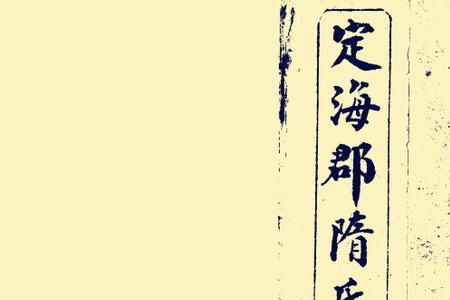 定海郡隋氏